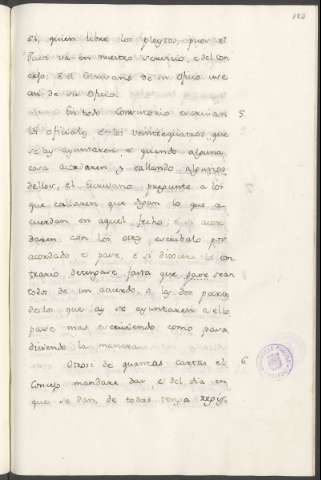 182
si, quien libre los pleytos, pues el
en nuestro servicio, e del con
cejo, e el Escrivano de su oficio use
de su oficio.
En todo escrivan 5
los oficiales e los veintequatros que
se ay ayuntaren, e quando alguna
cosa acordaren, y callando algunos
dellos, el Escrivano pregunte a los
que callaren que digan lo que a
cuerdan en aquel fecho, e si acor
daren con los otros escribalo por
acordado e pase, e si dixieren lo con
trario, fasta que sean
todos de un acuerdo, o las dos partes
de los que ay se ayuntaren a ello
pase mas escriviendo como para
diciendo la manera
Otrosi de quantas cartas el 6
Concejo mandare dar e del dia en
que se dan, de todas tenga regis